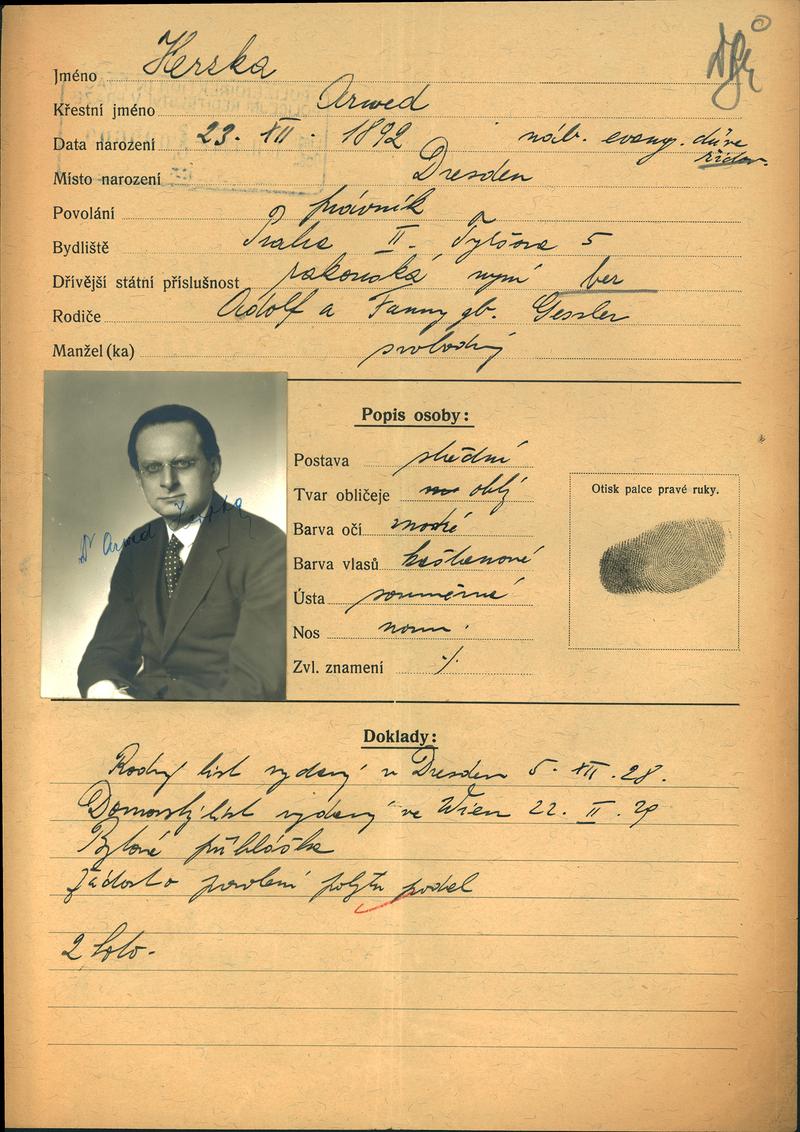 Jméno Herska
Křestní jméno Arwed
Data narození 23. XII. 1892 náb. evang. dříve
židov.
Místo narození Dresden
Povolání právník
Bydliště Praha II. Tyršova 5
Dřívější státní příslušnost rakouská nyní bez
Rodiče Adolf a Fanny gb. Gessler
Manžel (ka) svobodný
Popis osoby:
Postava střední
Tvar obličeje oblý
Barva očí modré
Barva vlasů kaštanové
Ústa souměrná
Nos norm.
Zvl. znamení ./.
Otisk palce pravé ruky.
Dr Arwed
Doklady:
Rodný list vydaný v Dresden 5. XII. 28.
Domovský list vydaný ve Wien 22. II. 29
Bytová přihláška
Žádost o povolení pobytu podal
2 foto.